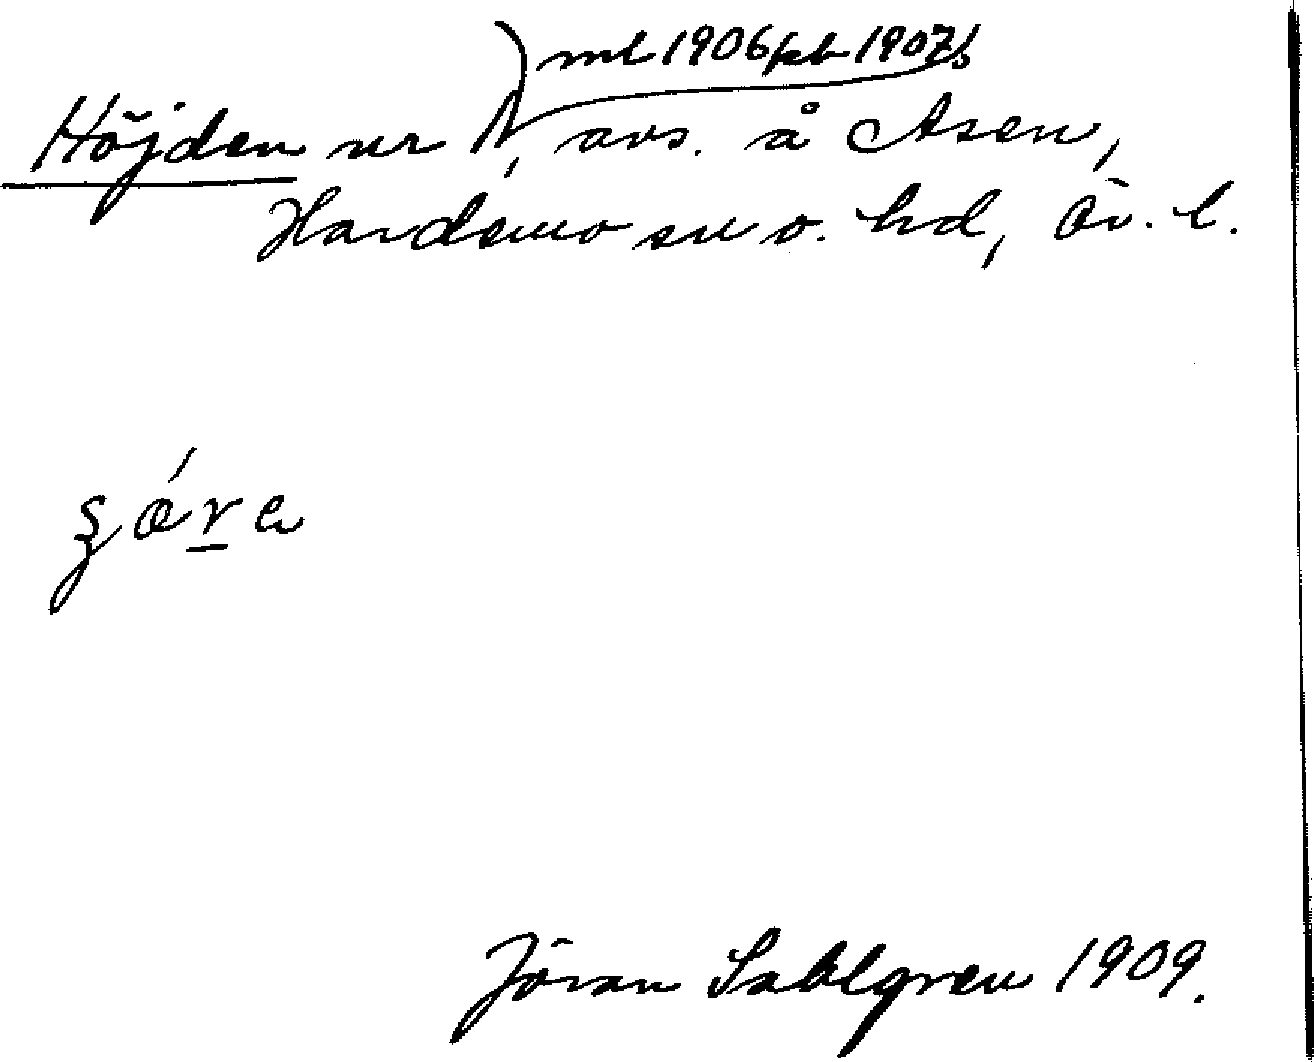 ml 1906 kb 1907 b
Höjden nr 1, avs. å Åsen,
Hardemo sn o. hd, Ör. l.
Jöran Sahlgren 1909.